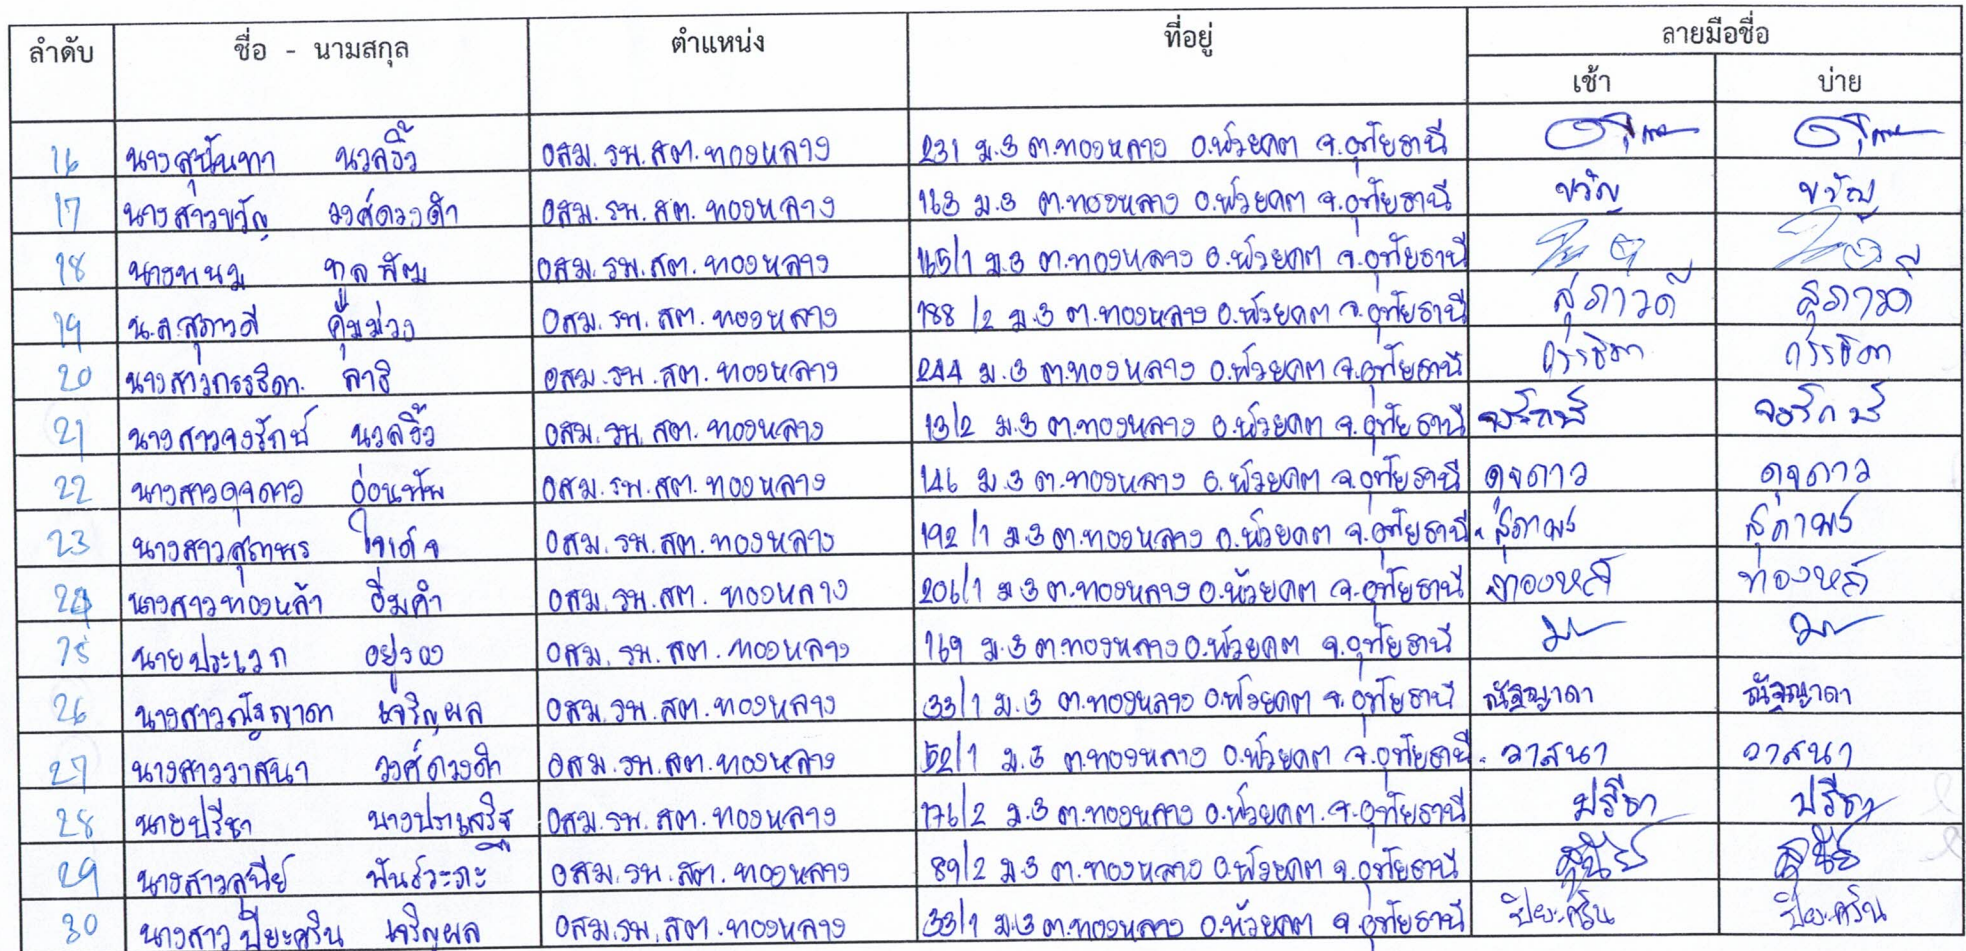 ลำดับ ชื่อ - นามสกุล ตำแหน่ง ที่อยู่ ลายมือชื่อ
เช้า บ่าย
16 นางสุนันทา นวลงิ้ว อสม.รพ.สต.ทองหลาง 231 ม.3 ต.ทองหลาง อ.ห้วยคต จ.อุทัยธานี
17 นางสาวขวัญ วงศ์ดวงดำ อสม.รพ.สต.ทองหลาง 163 ม.3 ต.ทองหลาง อ.ห้วยคต จ.อุทัยธานี ขวัญ ขวัญ
18 นางพนม อสม.รพ.สต.ทองหลาง 165/1 ม.3 ต.ทองหลาง อ.ห้วยคต จ.อุทัยธานี
19 น.ส.สุภาวดี คุ้มม่วง อสม.รพ.สต.ทองหลาง 188/2 ม.3 ต.ทองหลาง อ.ห้วยคต จ.อุทัยธานี สุภาวดี สุภาวดี
20 นางสาวกรรธิดา ลาธิ อสม.รพ.สต.ทองหลาง 244 ม.3 ต.ทองหลาง อ.ห้วยคต จ.อุทัยธานี กรรธิดา กรรธิดา
21 นางสาวจงรักษ์ นวลงิ้ว อสม.รพ.สต.ทองหลาง 13/2 ม.3 ต.ทองหลาง อ.ห้วยคต จ.อุทัยธานี จงรักษ์ จงรักษ์
22 นางสาวดุจดาว อ่อนทัพ อสม.รพ.สต.ทองหลาง 146 ม.3 ต.ทองหลาง อ.ห้วยคต จ.อุทัยธานี ดุจดาว ดุจดาว
23 นางสาวสุภาพร ใจเด็จ อสม.รพ.สต.ทองหลาง 192/1 ม.3 ต.ทองหลาง อ.ห้วยคต จ.อุทัยธานี สุภาพร สุภาพร
24 นางสาวทองหล้า อิ่มคำ อสม.รพ.สต.ทองหลาง 206/1 ม.3 ต.ทองหลาง อ.ห้วยคต จ.อุทัยธานี ทองหล้า ทองหล้า
25 นายประเวก อสม.รพ.สต.ทองหลาง 169 ม.3 ต.ทองหลาง อ.ห้วยคต จ.อุทัยธานี
26 นางสาวณัฐญาดา เจริญผล อสม.รพ.สต.ทองหลาง 33/1 ม.3 ต.ทองหลาง อ.ห้วยคต จ.อุทัยธานี ณัฐญาดา ณัฐญาดา
27 นางสาววาสนา วงศ์ดวงดำ อสม.รพ.สต.ทองหลาง 52/1 ม.3 ต.ทองหลาง อ.ห้วยคต จ.อุทัยธานี วาสนา วาสนา
28 นายปรีชา บางปราเสริฐ อสม.รพ.สต.ทองหลาง 176/2 ม.3 ต.ทองหลาง อ.ห้วยคต จ.อุทัยธานี ปรีชา ปรีชา
29 นางสาวสุนีย์ พันธ์วะภะ อสม.รพ.สต.ทองหลาง 89/2 ม.3 ต.ทองหลาง อ.ห้วยคต จ.อุทัยธานี สุนีย์ สุนีย์
30 นางสาวปิยะศรีน เจริญผล อสม.รพ.สต.ทองหลาง 33/1 ม.3 ต.ทองหลาง อ.ห้วยคต จ.อุทัยธานี ปิยะศรีน ปิยะศรีน